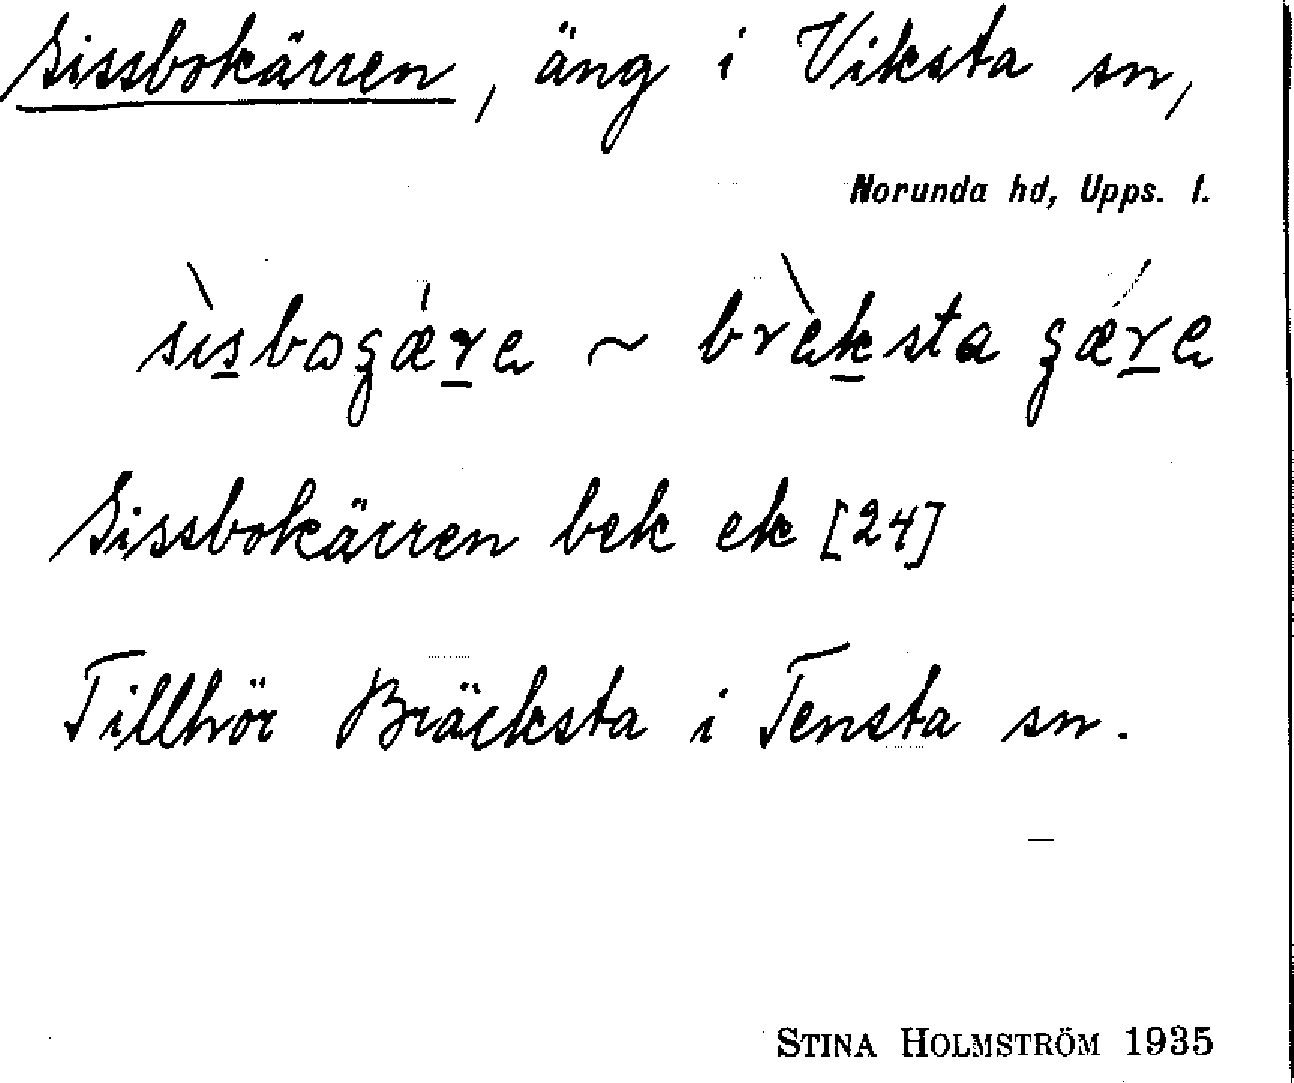 Sissbokärren, äng i Viksta sn,
Norunda hd, Upps. l.
Sissbokärren bek ek [24]
Tillhör Bräcksta i Tensta sn.
STINA HOLMSTRÖM 1935